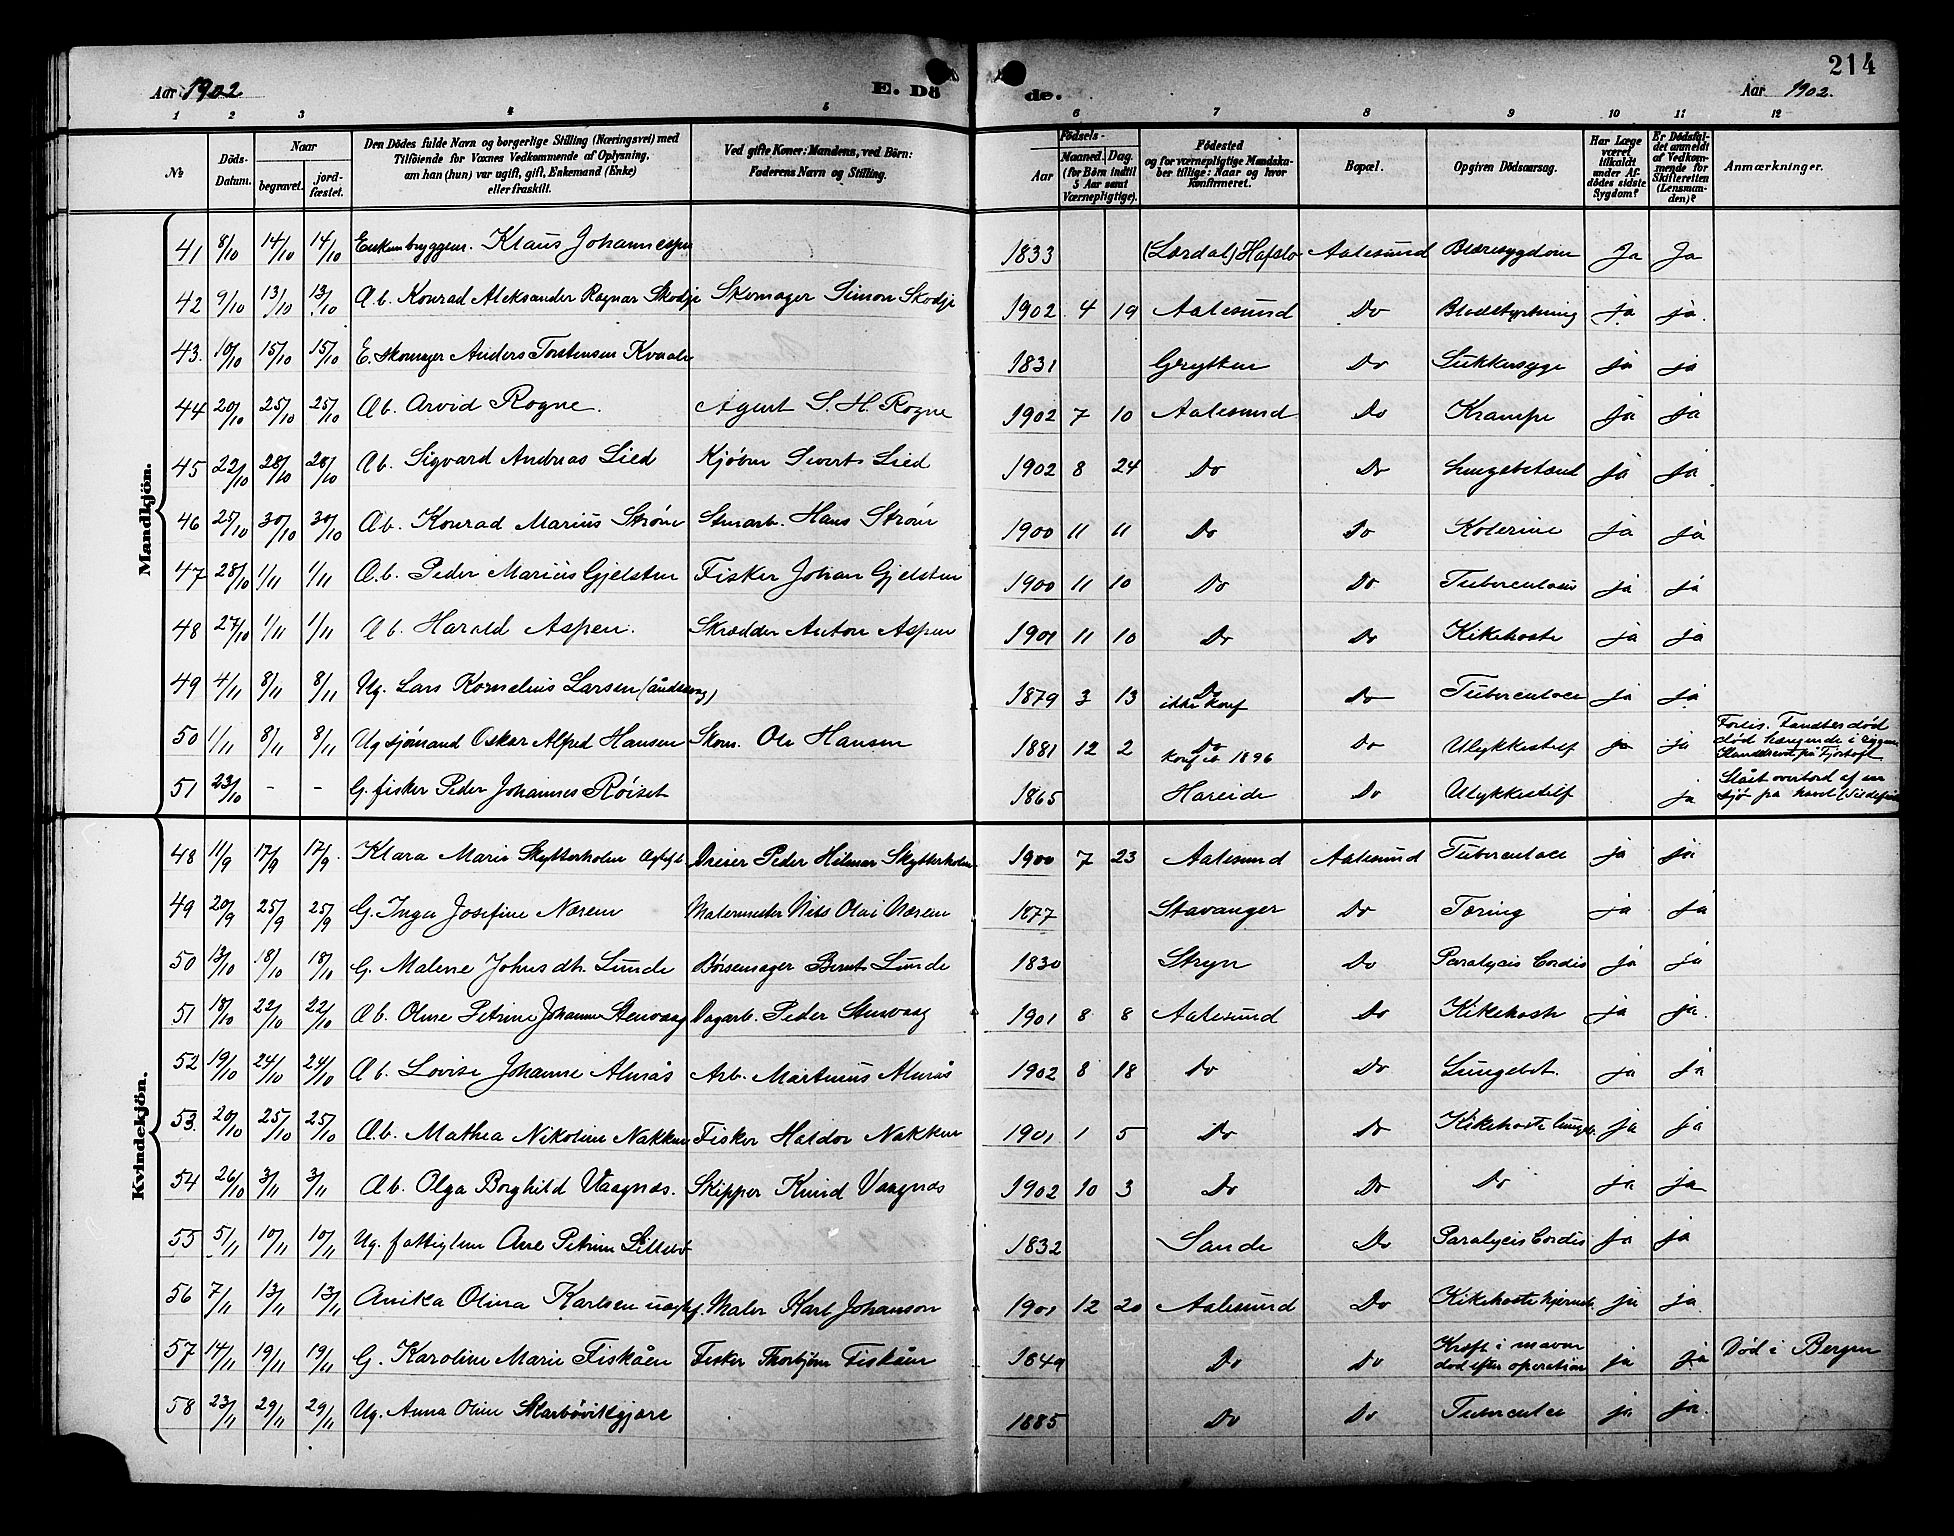 214
Aar 1902
E. Dö
de.
Aar 1902.
1 2 3 4 5 6 7 8 9 10 11 12
No
Döds-Datum.
Naar
begravet.
jord-fæstet.
Den Dödes fulde Navn og borgerlige Stilling (Næringsvei) med
Tilföiende for Voxnes Vedkommende af Oplysning,
om han (hun) var ugift, gift, Enkemand (Enke)
eller fraskilt.
Ved gifte Koner: Mandens, ved Börn:
Faderens Navn og Stilling.
Födsels-
Aar
Maaned. Dag.
(for Börn indtil
5 Aar samt
Værnepligtige).
Födested
og for værnepligtige Mandska-
ber tillige: Naar og hvor
konfirmeret.
Bopæl.
Opgiven Dödsaarsag.
Har Læge
været
tilkaldt
under Af-
dödes sidste
Sygdom?
Er Dödsfal-
det anmeldt
af Vedkom-
mende for
Skifteretten
(Lensman-
den)?
Anmærkninger.
Mandkjön.
41 8/10 14/10 14/10 Klaus Johannesen 1833 (Lærdal) Hafslo Aalesund Blæresygdom Ja Ja
42 9/10 13/10 13/10 Æ.b. Konrad Aleksander Ragnar Skodje Skomager Simon Skodje 1902 4 19 Aalesund Do Blodstyrtning ja ja.
43. 10/10 15/10 15/10 E. Skomager Anders Torstensen Kvaale 1831 Grytten Do Sukkersyge ja ja
44 20/10 25/10 25/10 Æ.b. Arvid Rogne. Agent S. H. Rogne 1902 7 10 Aalesund Do Krampe ja ja
45 22/10 28/10 28/10 Æ.b. Sigvard Andreas Lied Kjøbm Sivert Lied 1902 8 24 Do Do Lungebetænd ja ja
46 25/10 30/10 30/10 Æ.b. Konrad Marius Strøm Stenarb. Hans Strøm 1900 11 11 Do Do Kolerine ja ja
47 28/10 1/11 1/11 Æ.b. Peder Marius Gjelsten Fisker Johan Gjelsten 1900 11 10 Do Do Tuberculose ja ja
48 27/10 1/11 1/11 Æ.b. Harald Aspen. Skrædder Anton Aspen 1901 11 10 Do Do Kikehoste ja ja
49 4/11 8/11 8/11 Ug. Lars Kornelius Larsen (åndssvag) 1879 3 13 Do ikke konf Do Tuberculose ja ja
50 1/11 8/11 8/11 Ug sjømand Oskar Alfred Hansen Skom. Ole Hansen 1881 12 2 Do Konf. 1896 Do Ulykkestilf ja ja Forlis. Fandtes død
på Fjørtoft
51 23/10 - - G. fisker Peder Johannes Røiset 1865 Hareide Do Ulykkestilf ja Slået overbord af en
sjø på havet
Kvindekjön.
48 11/9 17/9 17/9. Klara Marie Skytterholm Ægtef.b Dreier Peder Hilmar Skytterholm 1900 7 23 Aalesund Aalesund Tuberculose ja ja
49 20/9 25/9 25/9 G. Inga Josefine Nærem Malermester Nils Olai Nærem 1877 Stavanger Do Tæring ja ja
50 13/10 18/10 18/10 G. Malene Johnsdtr. Lunde Børsemager Bernt Lunde 1830 Stryn Do Paralycis Cordis ja ja
51 18/10 22/10 22/10 Æ.b. Oline Petrine Johanne Stenvaag Dagarb. Peder Stenvaag 1901 8 8 Aalesund Do Kikehoste ja ja.
52 19/10 24/10 24/10 Æ.b. Lovise Johanne Almås Arb. Martinus Almås 1902 8 18 Do Do Lungebet. ja ja
53. 20/10 25/10 25/10 Æ.b. Mathea Nikoline Nakken Fisker Haldor Nakken 1901 1 5 Do Do Kikehoste lungeb. ja ja
54 26/10 3/11 3/11 Æ.b. Olga Borghild Vaagnæs. Skipper Knud Vaagnæs 1902 10 3 Do Do Do ja ja
55 5/11 10/11 10/11 Ug. fattiglem Ane Petrine 1832 Sande Do Paralycis Cordis ja ja
56 7/11 13/11 13/11 Anika Olina Karlsen uægtef. Maler Karl Johanson 1901 12 20 Aalesund Do Kikehoste ja ja.
57 14/11 19/11 19/11 G. Karoline Marie Fiskåen Fisker Thorbjørn Fiskåen 1849 Do Do Kræft i maven
død efter operation ja ja Død i Bergen
58 23/11 29/11 29/11 Ug. Anna Oline Skarbøvikgjære 1885 Do Do Tuberculos ja ja.